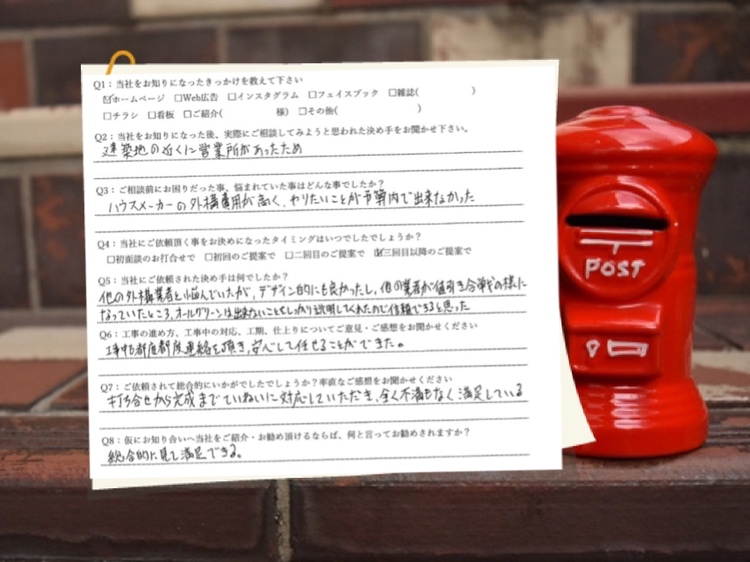 Q1：当社をお知りになったきっかけを教えて下さい
☑ホームページ　□Web広告　□インスタグラム　□フェイスブック　□雑誌(　　　　　　)
□チラシ　□看板　□ご紹介(　　　　　　様)　□その他(　　　　　　　　　)
Q2：当社をお知りになった後、実際にご相談してみようと思われた決め手をお聞かせ下さい。
建築地の近くに営業所があったため
Q3：ご相談前にお困りだった事、悩まれていた事はどんな事でしたか？
ハウスメーカーの外構費用が高く、やりたいことが予算内で出来なかった
Q4：当社にご依頼頂く事をお決めになったタイミングはいつでしたでしょうか？
□初面談のお打合せで　□初回のご提案で　□二回目のご提案で　☑三回目以降のご提案で
Q5：当社にご依頼された決め手は何でしたか？
他の外構業者と悩んでいたが、デザイン的にも良かったし、他の業者が値引き合戦の様に
なっていたところ、オールグリーンは出来ないこともしっかり説明してくれたので信頼できると思った
Q6：工事の進め方、工事中の対応、工期、仕上りについてご意見・ご感想をお聞かせください
工事中も都度都度連絡を頂き、安心して任せることができた。
Q7：ご依頼されて総合的にいかがでしたでしょうか？率直なご感想をお聞かせください
打ち合せから完成までていねいに対応していただき、全く不満もなく満足している
Q8：仮にお知り合いへ当社をご紹介・お勧め頂けるならば、何と言ってお勧めされますか？
総合的に見て満足できる。
POST